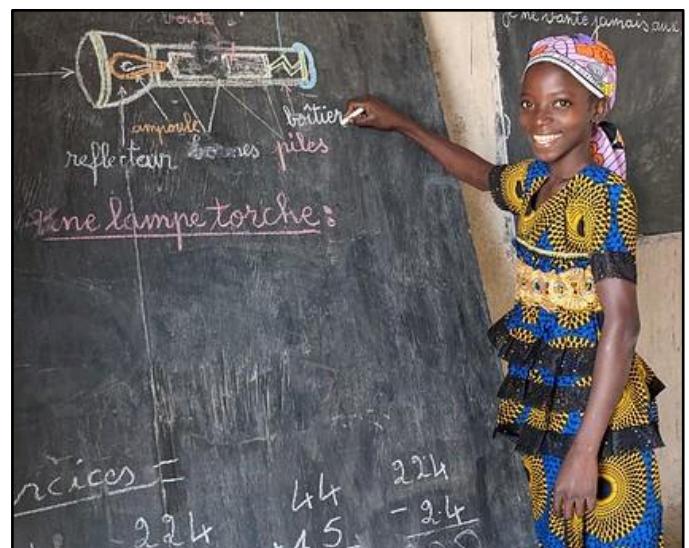 je ne vante jamais aux
boîtier
ampoule
réflecteur bornes piles
Une lampe torche :
rcices =
44 224
- 224 15 - 24